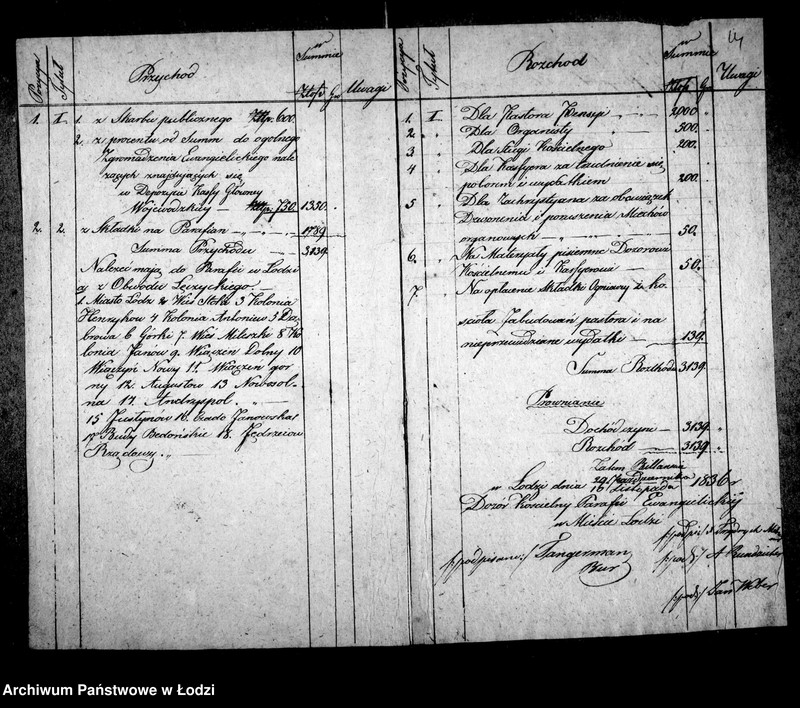 14
Pozycya Tytuł Przychód w Summie Złotp. Gr. Uwagi
1. I. 1. z Skarbu publicznego Złtp. 600.
2. z procentu od Summ do ogolnego
Zgromadzenia Ewangielickiego nale
zących znajduiących się
w Depozycie Kassy Głowney
Wojewodzkiey — Złtp. 730. 1330.
2. 2. z Składki na Parafian — 1789
Summa Przychodu — 3139.
Należeć maią do Parafii w Łodzi
a, z Obwodu Łęczyckiego. —
1. Miasto Łodz 2 Wieś Stoki 3 Kolonia
Henrykow 4 Kolonia Antoniew 5 Dą-
browa 6 Górki 7. Wieś Mileszki 8 Ko
lonia Janow 9. Wiączen Dolny 10
Wiączyń Nowy 11 Wiączen gor
ny 12. Augustow 13 Nowosol-
na 14. Andrzypol. „ —
15 Justynów 16. Janowska
17 Budy Bedońskie 18. Jędrzeiow
Rzgclawy. „ —
Pozycya Tytuł Rozchod w Summie Złotp. G. Uwagi
1. I Dla Pastora Pensyi 2000
2. Dla Organisty 500.
3 Dla Sługi Kościelnego 200.
4 Dla Kassyera za trudnienie się
poborem i wydatkiem 200.
5 Dla Zachrystyana za obowiązek
Dzwonienia i poruszenia Miechow
organowych — 50.
6. Na Materyały pismienne Dozorowi
Kościelnemu i Kassyerowi — 50.
7. Na opłacenie Składki Ogniowey z ko
scioła Zabudowań pastora i na
nieprzewidziane wydatki — 139.
Summa Rozchodu 3139.
Porównanie
Dochód czyni — 3139.
Rozchód — 3139.
Zatem Billansuie
w Łodzi dnia 29 Pazdziernika / 10 Listopada 1836 r
Dozór Kościelny Parafii Ewangelickiey
w Mieście Łodzi
/podpisano:/ Tangerman
Bur
/podpis:/ Frydrych
/podp:/ A
/podp:/ Jan Weber
Archiwum Państwowe w Łodzi